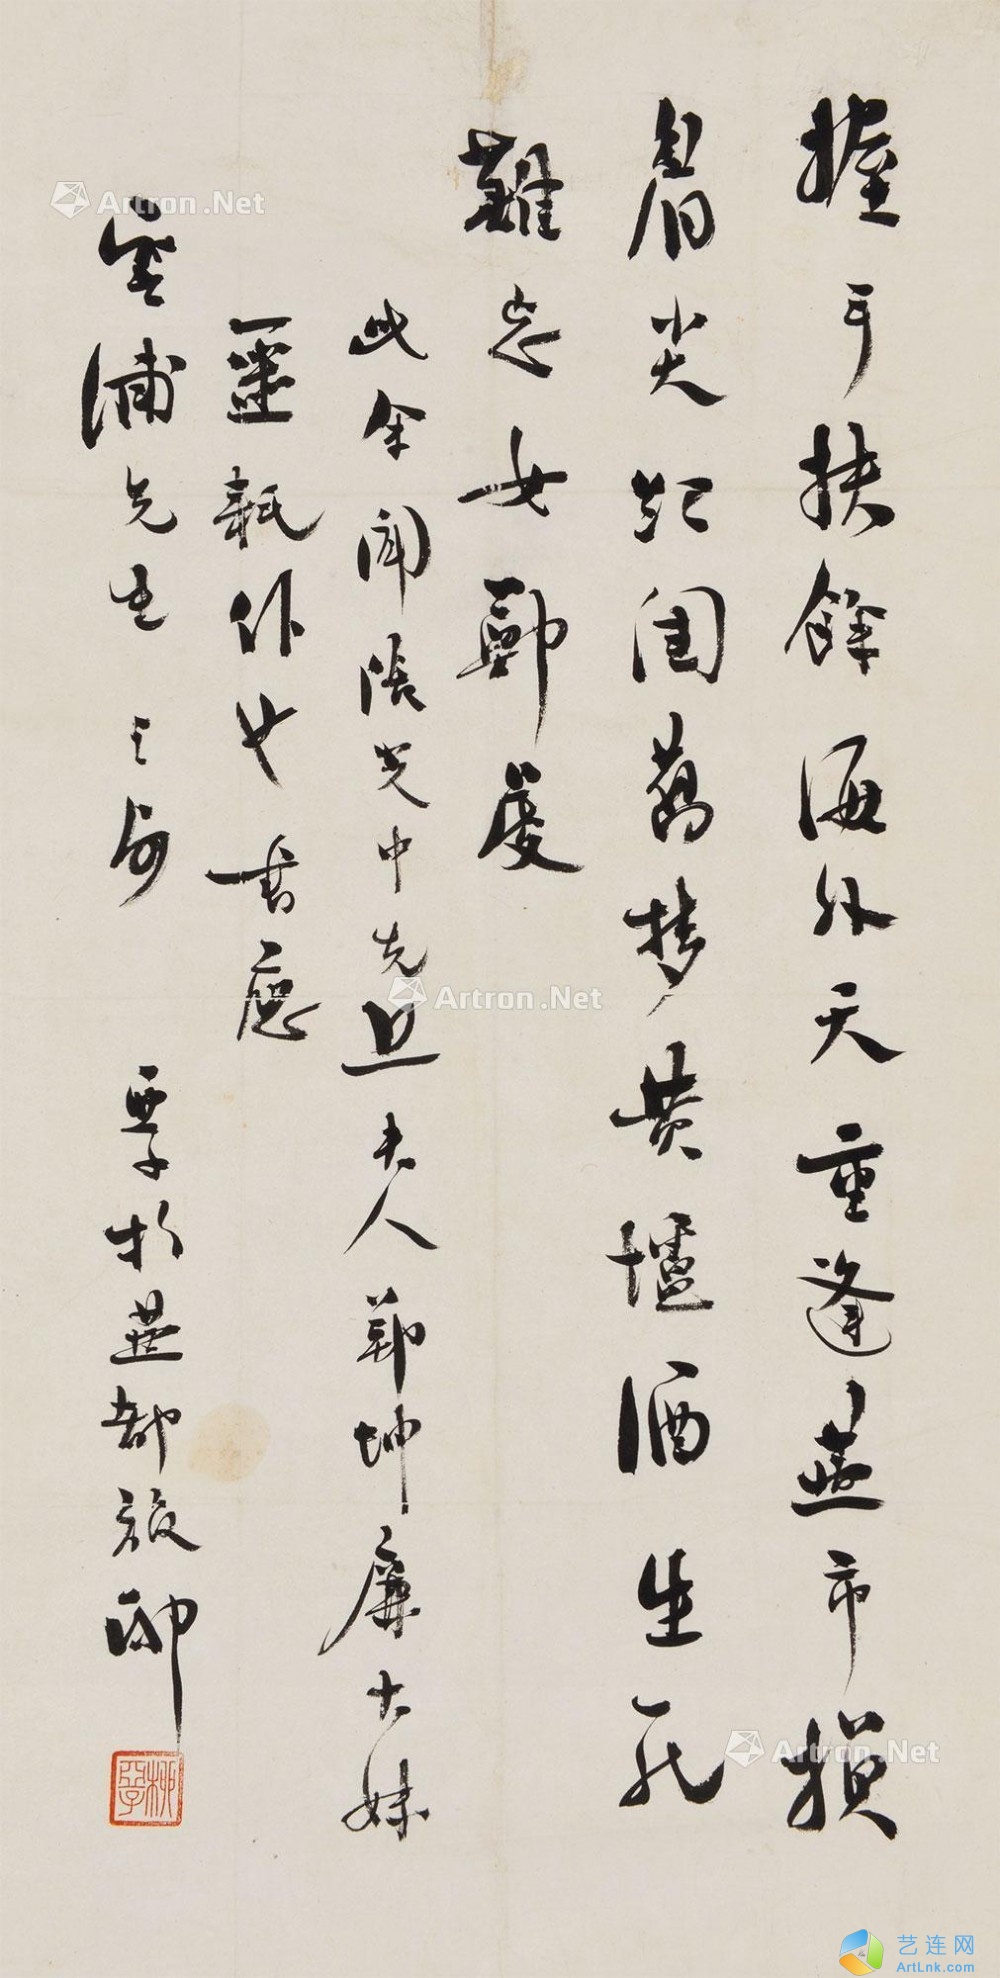 握手扶餘海外天重逢燕市損
眉尖圍舊夢黃壚酒生死
難忘女鄭虔
此余聞光中先夫人鄭坤廉大妹
噩耗作也書應
浦先生之屬 亞子於燕都旅邸
Artron.Net
Artron.Net
Artron.Net
艺连网
ArtLnk.com